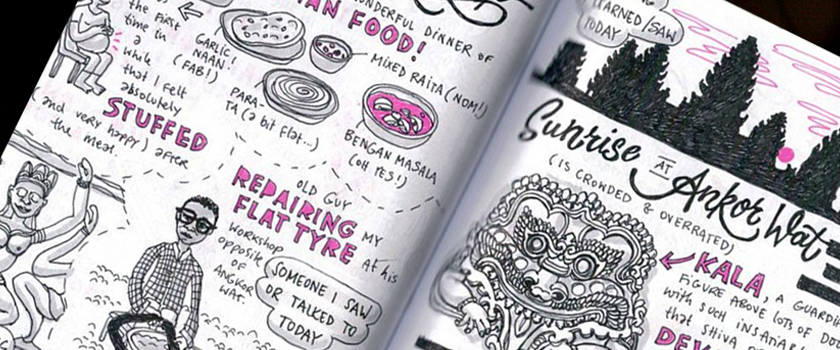 the First
time in
a
while
that I felt
absolutely
STUFFED
(and very happy) after
the meal.
WONDERFUL DINNER OF
FOOD!
GARLIC!
NAAN
(FAB!)
MIXED RAITA (NOM!)
PARA-
TA (a bit flat...)
BENGAN MASALA
(OH YES!)
OLD GUY
REPAIRING MY
FLAT TYRE At his
WORKSHOP
opposite
OF
ANGKOR
WAT.
SOMEONE I SAW
OR TALKED TO
TODAY
LEARNED/SAW
TODAY
Sunrise AT Ankor Wat
(IS CROWDED & OVERRATED)
KALA, A GUARD
FIGURE ABOVE LOTS OF
with such INSATIAB
that SHIVA